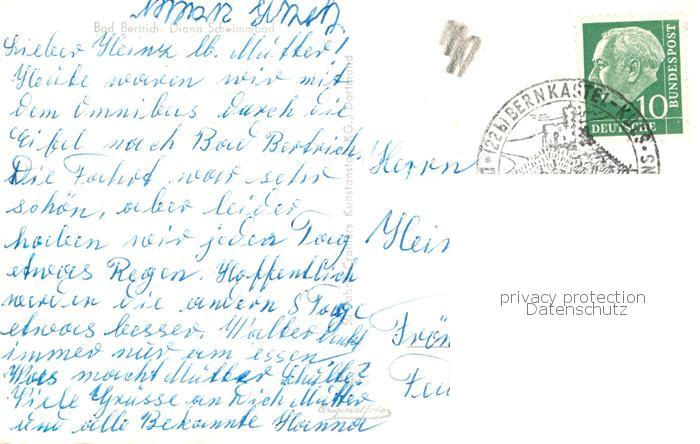 Bad Bertrich. Diana Schwimmbad
Lieber Heinz lb. Mütter!
Heute waren wir mit
dem Omnibus durch die
Eifel nach Bad Bertrich.
Die Fahrt war sehr
schön, aber leider
haben wir jeden Tag
etwas Regen. Hoffentlich
werden die andern 8 Tage
etwas besser. Walter denkt
immer nur am essen
Was macht Mütter Schulte?
Viele Grüsse an Dich Mütter
und alle Bekannte Hanna
Cramers Kunstanstalt KG., Dortmund
Herrn
Hein
Frön
(22b) BERNKASTEL-KUES
DEUTSCHE
BUNDESPOST
10
privacy protection
Datenschutz